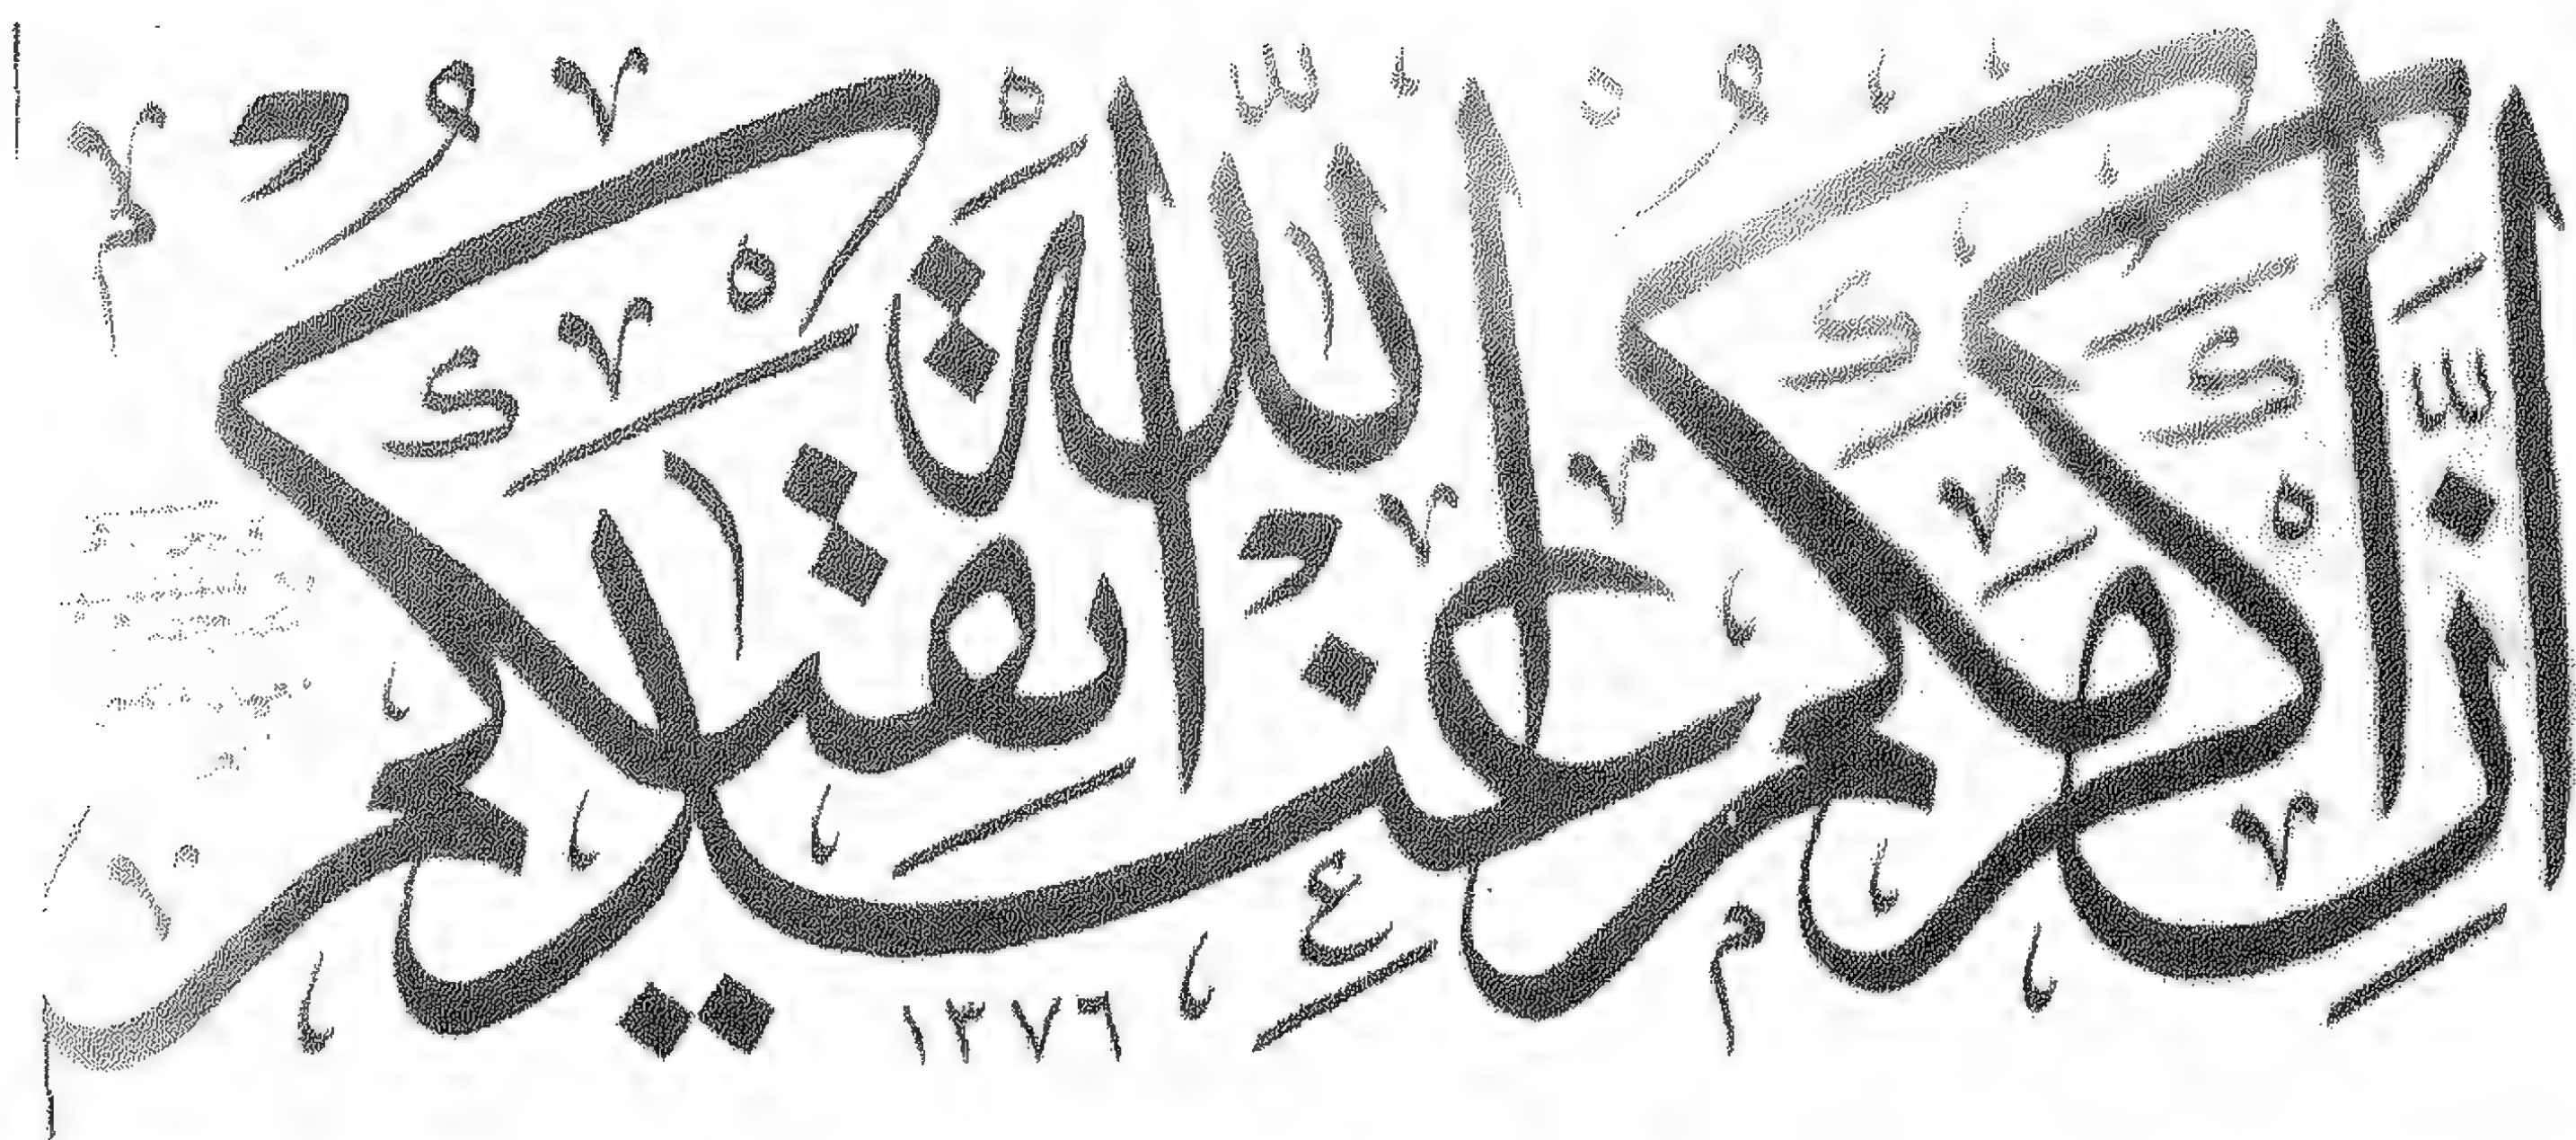 ان اكرمكم عند الله اتقيكم
١٢٧٦